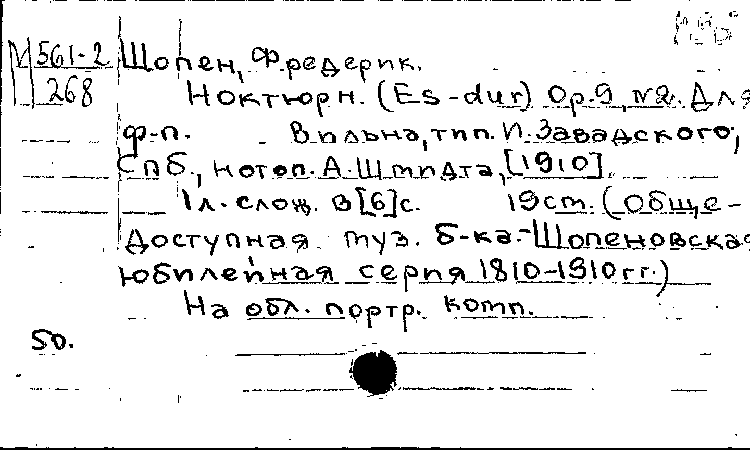 М 561-2 Шопен, Фредерик.
268 Ноктюрн. (Es-dur) Op.9, №2. Для
ф-п. Вильна, тип. И. Завадского,
Спб., нотоп. А. Шмидта, [1910].
1л. слож. в [6] с. 19 ст. (Обще-
доступная муз. б-ка.-Шопеновская
юбилейная серия 1810-1910 гг.)
На обл. портр. комп.
50.